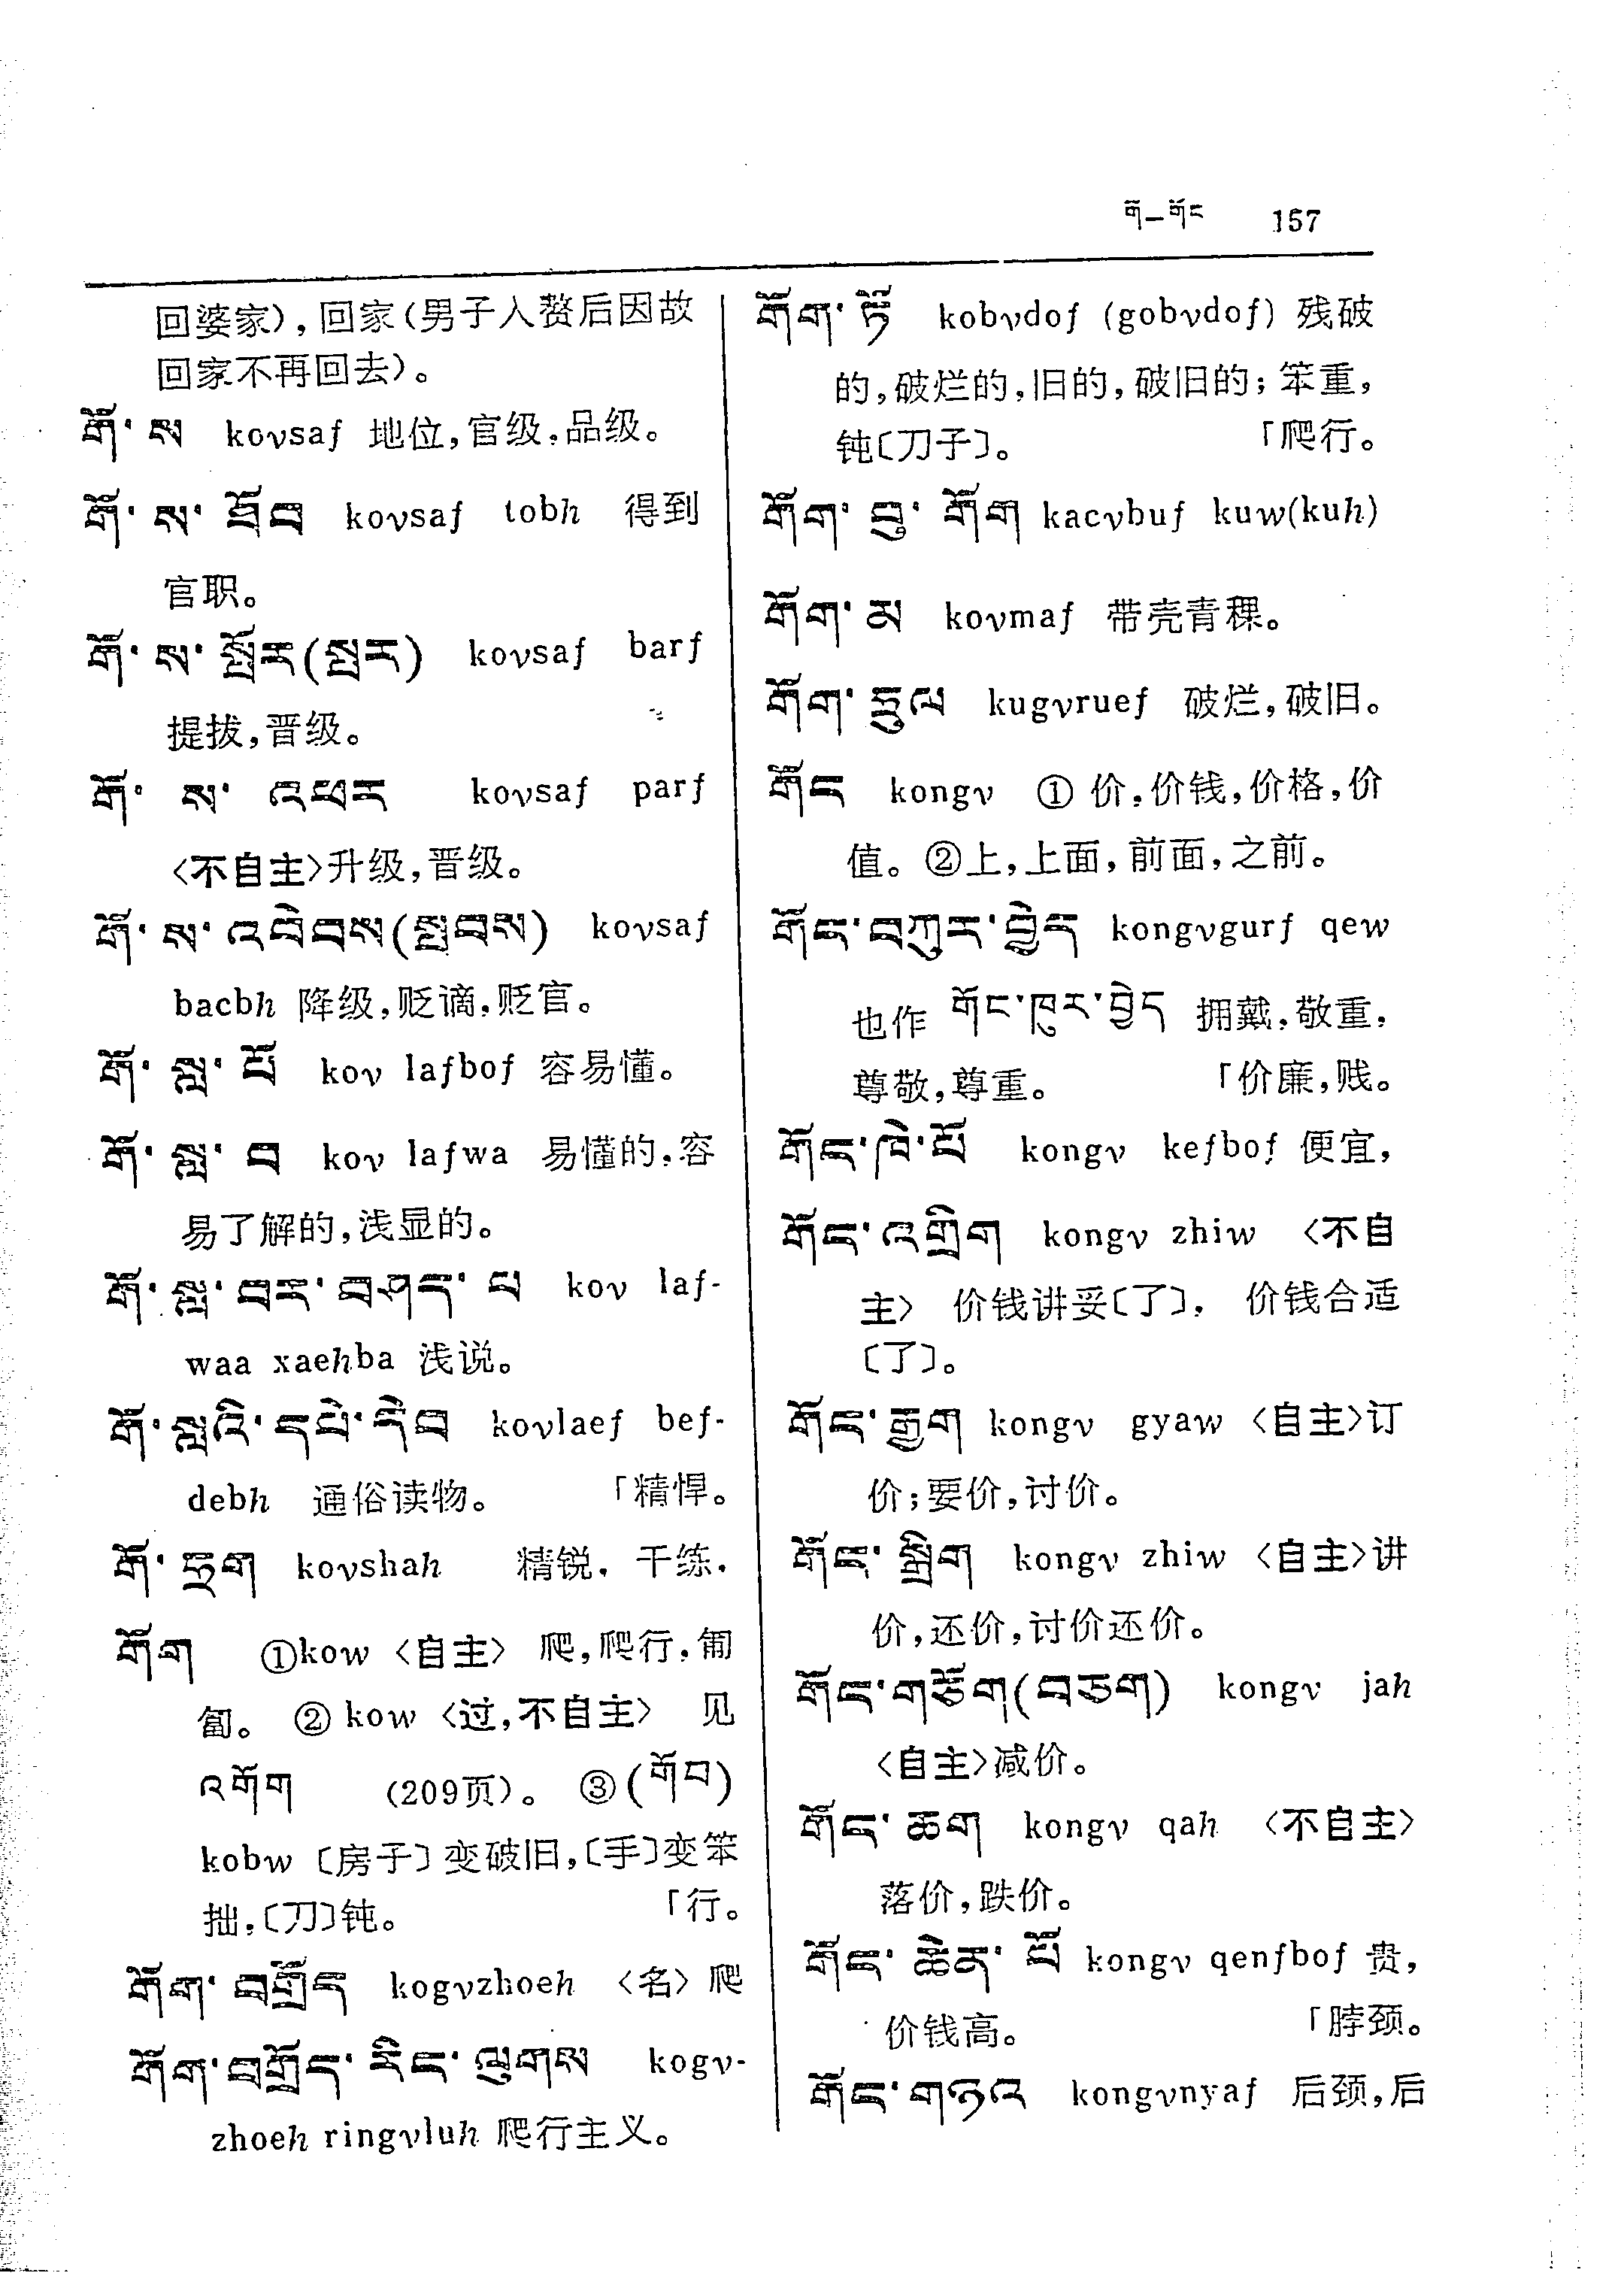 གོ—གོང 157
回婆家），回家（男子入赘后因故
回家不再回去）。
གོ་ས kovsaf 地位，官级，品级。
གོ་ས་ཐོབ kovsaf tobh 得到
官职。
གོ་ས་སྤོར(སྤར) kovsaf barf
提拔，晋级。
གོ་ས་འཕར kovsaf parf
〈不自主〉升级，晋级。
གོ་ས་འབེབས(སྤབས) kovsaf
bacbh 降级，贬谪，贬官。
གོ་སླ་པོ kov lafbof 容易懂。
གོ་སླ་བ kov lafwa 易懂的，容
易了解的，浅显的。
གོ་སླ་བར་བཤད་པ kov laf-
waa xaehba 浅说。
གོ་སླའི་དཔེ་དེབ kovlaef bef-
debh 通俗读物。 「精悍。
གོ་ཧྲག kovshah 精锐，干练，
གོག ①kow〈自主〉爬，爬行，匍
匐。 ② kow〈过，不自主〉 见
འགོག （209页）。 ③(གོབ)
kobw〔房子〕变破旧，〔手〕变笨
拙，〔刀〕钝。 「行。
གོག་བགྲོད kogvzhoeh 〈名〉爬
གོག་བགྲོད་རིང་ལུགས kogv-
zhoeh ringvluh 爬行主义。
གོག་ཏོ kobvdof (gobvdof) 残破
的，破烂的，旧的，破旧的；笨重，
钝〔刀子〕。 「爬行。
གོག་བུ་གོག kacvbuf kuw(kuh)
གོག་མ kovmaf 带壳青稞。
གོག་ཧྲུལ kugvruef 破烂，破旧。
གོང kongv ① 价，价钱，价格，价
值。②上，上面，前面，之前。
གོང་བཀུར་བྱེད kongvgurf qew
也作 གོང་ཁུར་བྱེད 拥戴，敬重，
尊敬，尊重。 「价廉，贱。
གོང་ཁེ་པོ kongv kefbof 便宜，
གོང་འགྲིག kongv zhiw 〈不自
主〉 价钱讲妥〔了〕， 价钱合适
〔了〕。
གོང་རྒྱག kongv gyaw〈自主〉订
价；要价，讨价。
གོང་སྒྲིག kongv zhiw〈自主〉讲
价，还价，讨价还价。
གོང་གཅོག(བཅག) kongv jah
〈自主〉减价。
གོང་ཆག kongv qah 〈不自主〉
落价，跌价。
གོང་ཆེན་པོ kongv qenfbof 贵，
价钱高。 「脖颈。
གོང་གཉའ kongvnyaf 后颈，后